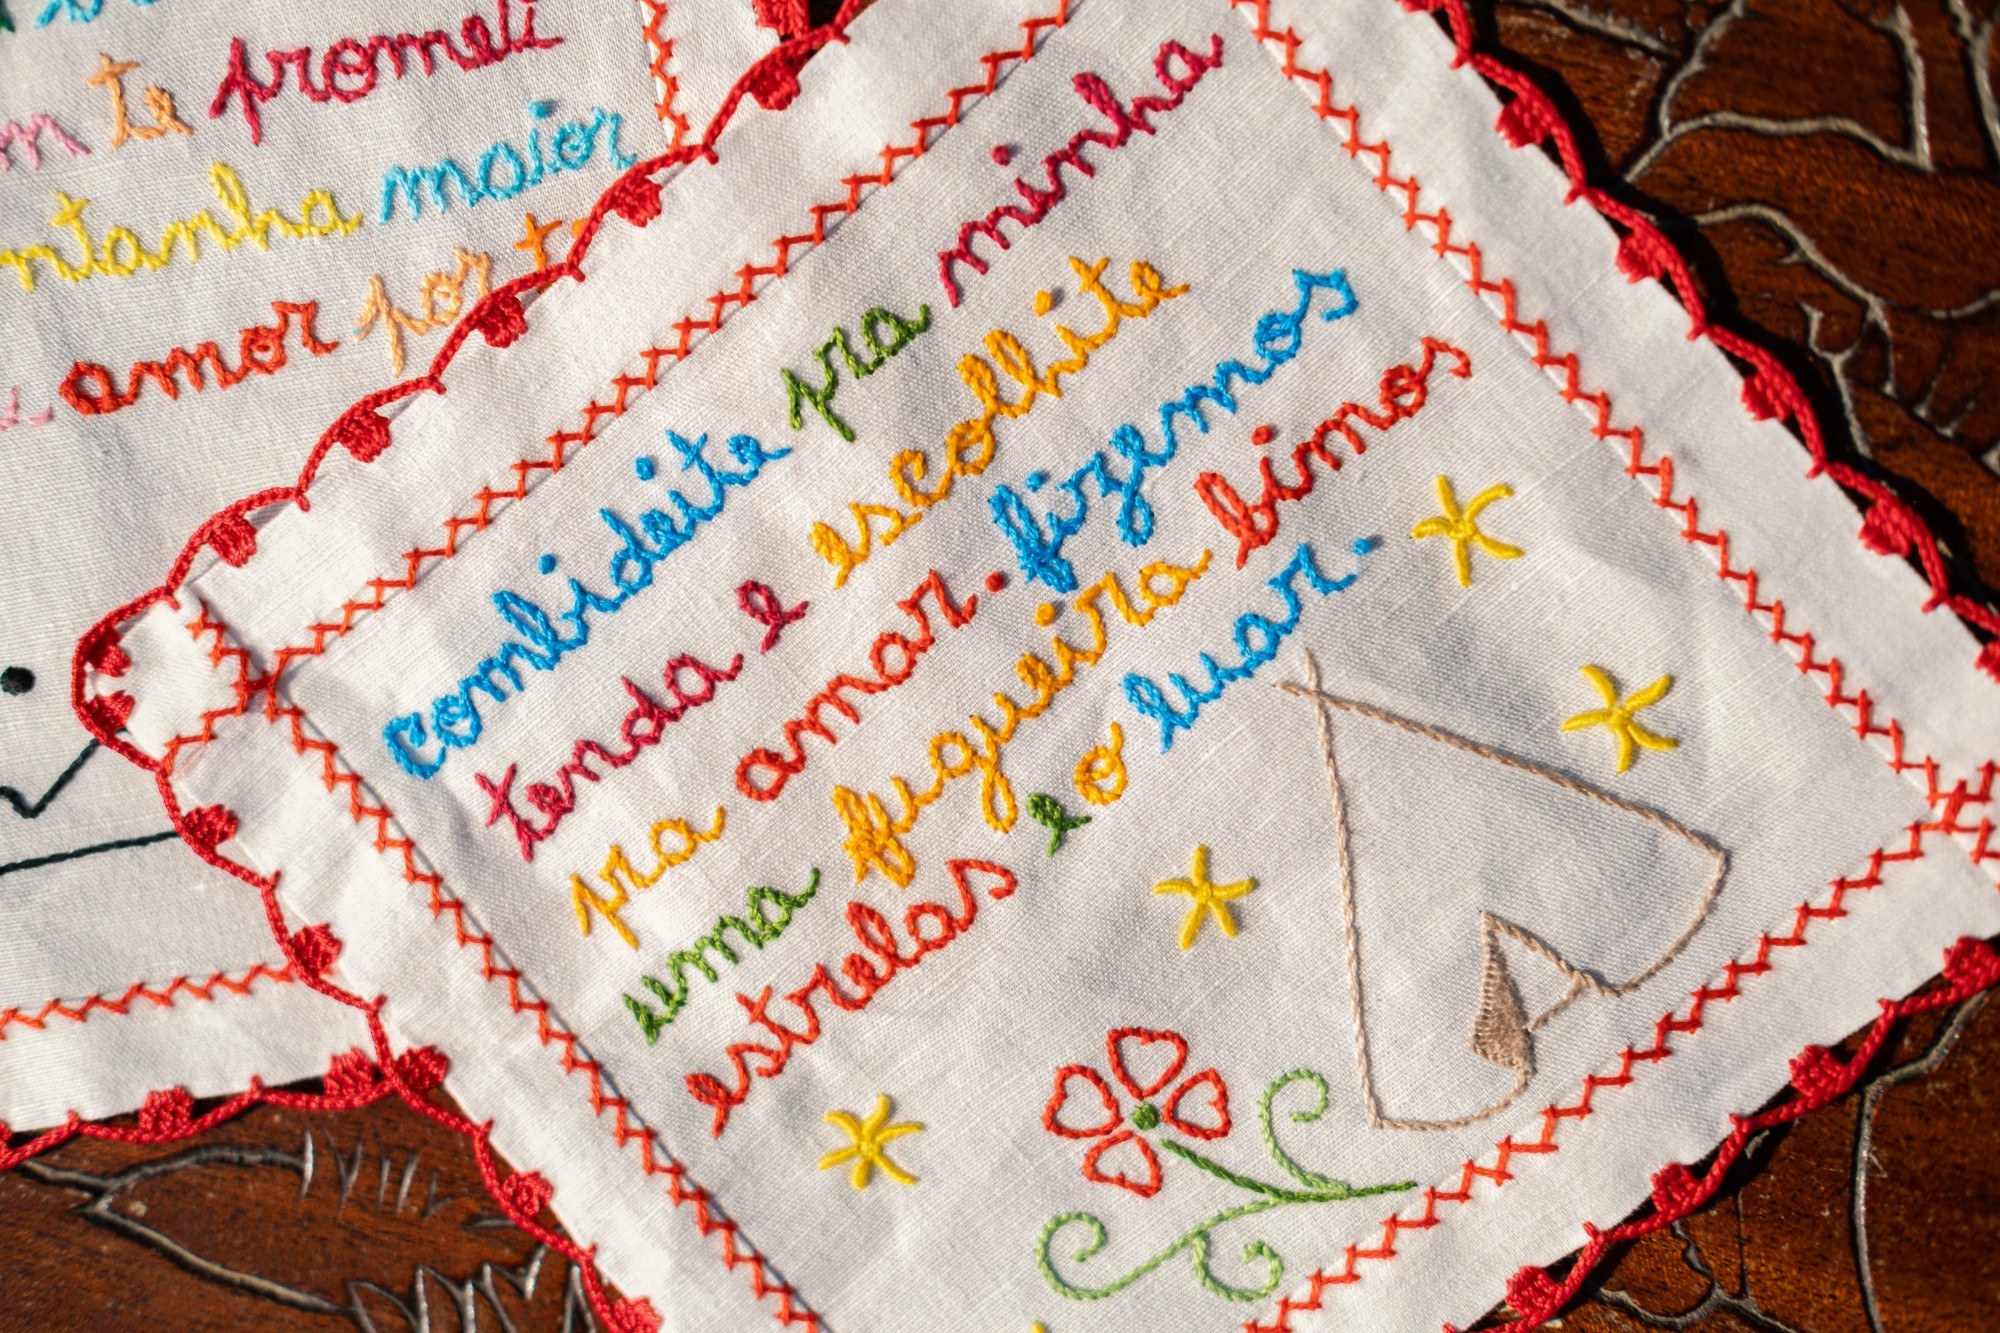 te prometi
ntanha maior
amor por te
combideite pra minha
tenda e escolhite
pra amar. fizemos
uma fugueira bimos
estrelas e o luar.